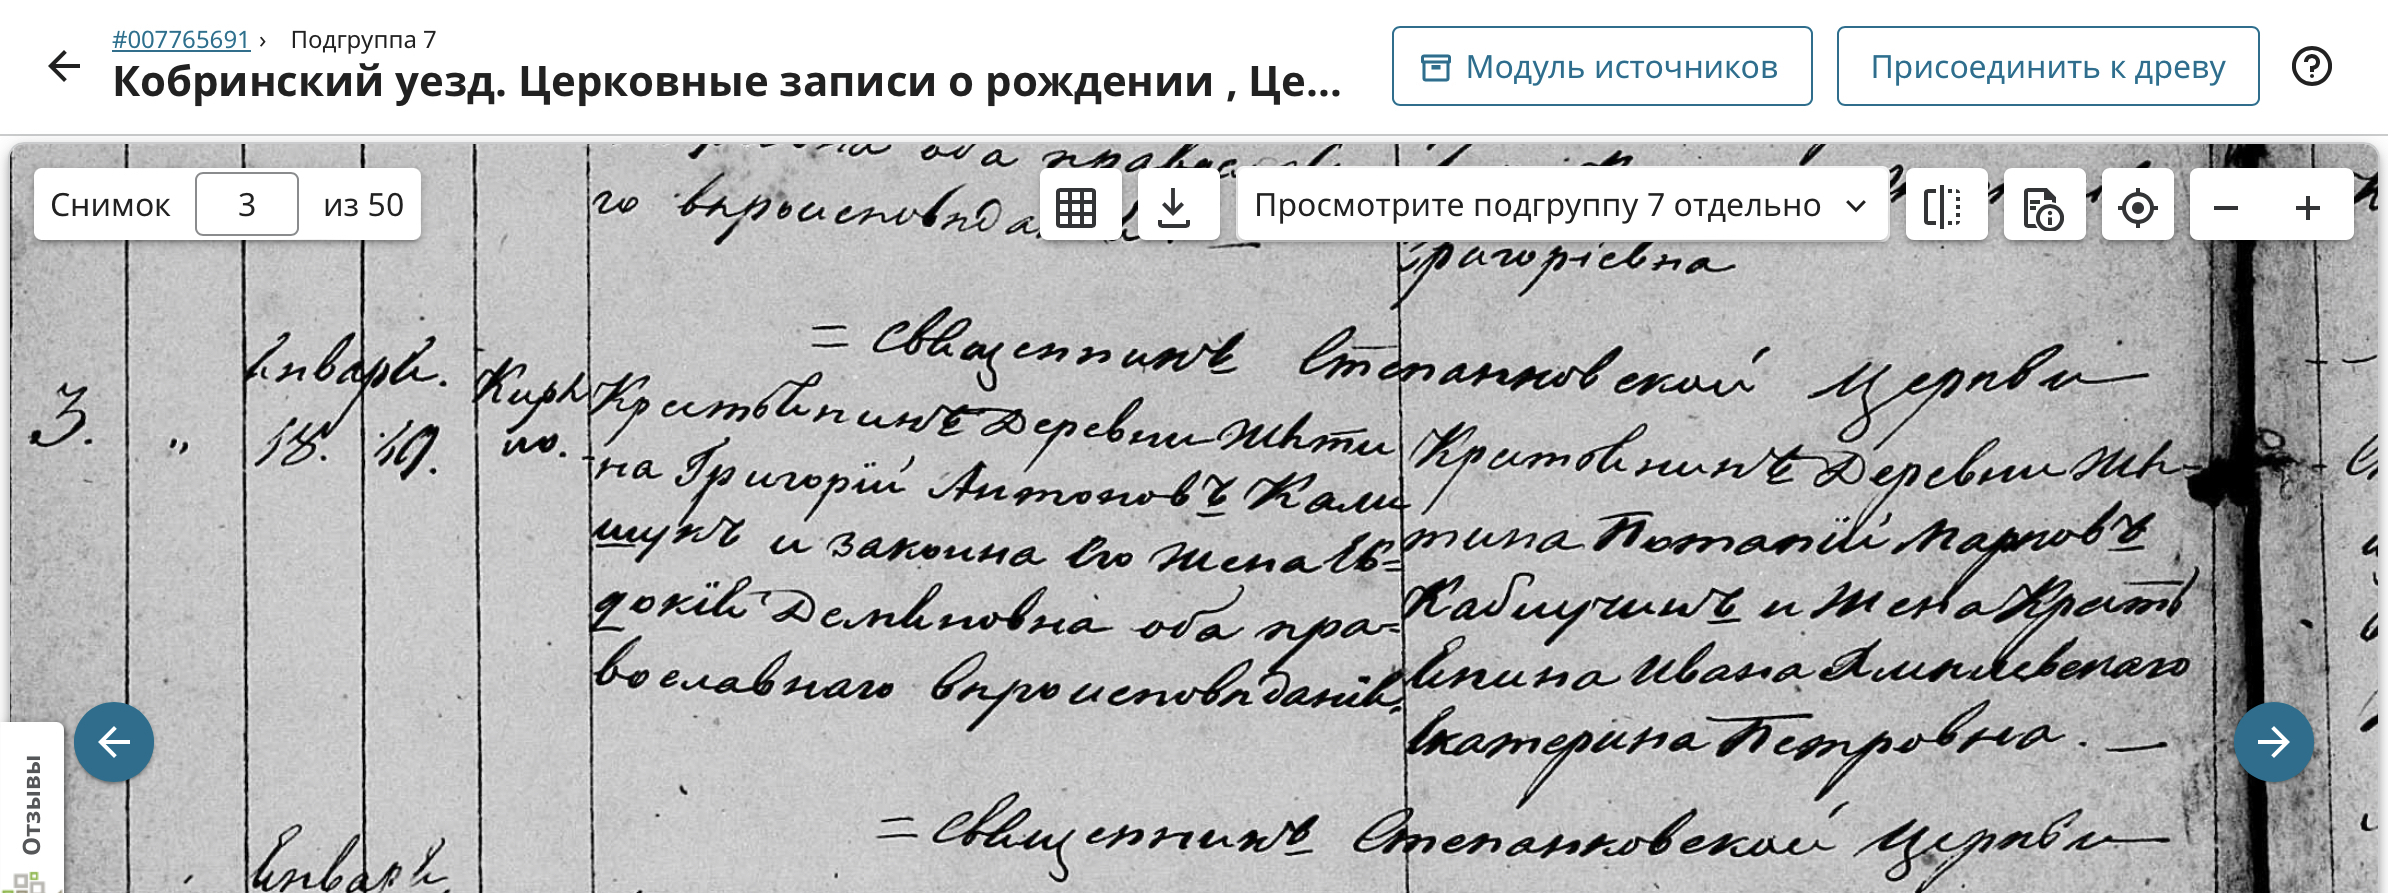 #007765691 › Подгруппа 7
Кобринский уезд. Церковные записи о рождении , Це...
Модуль источников
Присоединить к древу
Снимок 3 из 50
Просмотрите подгруппу 7 отдельно
оба
го вѣроисповѣда
Григоріевна
= Священникъ Степанковской Церкви
3. „ Января. 18. 19. Кири
ло.
Крестьянинъ Деревни Жити
на Григорій Антоновъ Кали
шукъ и законна Его жена Ев=
докія Демяновна оба пра=
вославнаго вѣроисповѣданія.
Крестьянинъ Деревни Жи-
тина Потапій Марковъ
и жена Кресть
янина Ивана
Екатерина Петровна. —
= Священникъ Степанковской Церкви
Январь
Отзывы